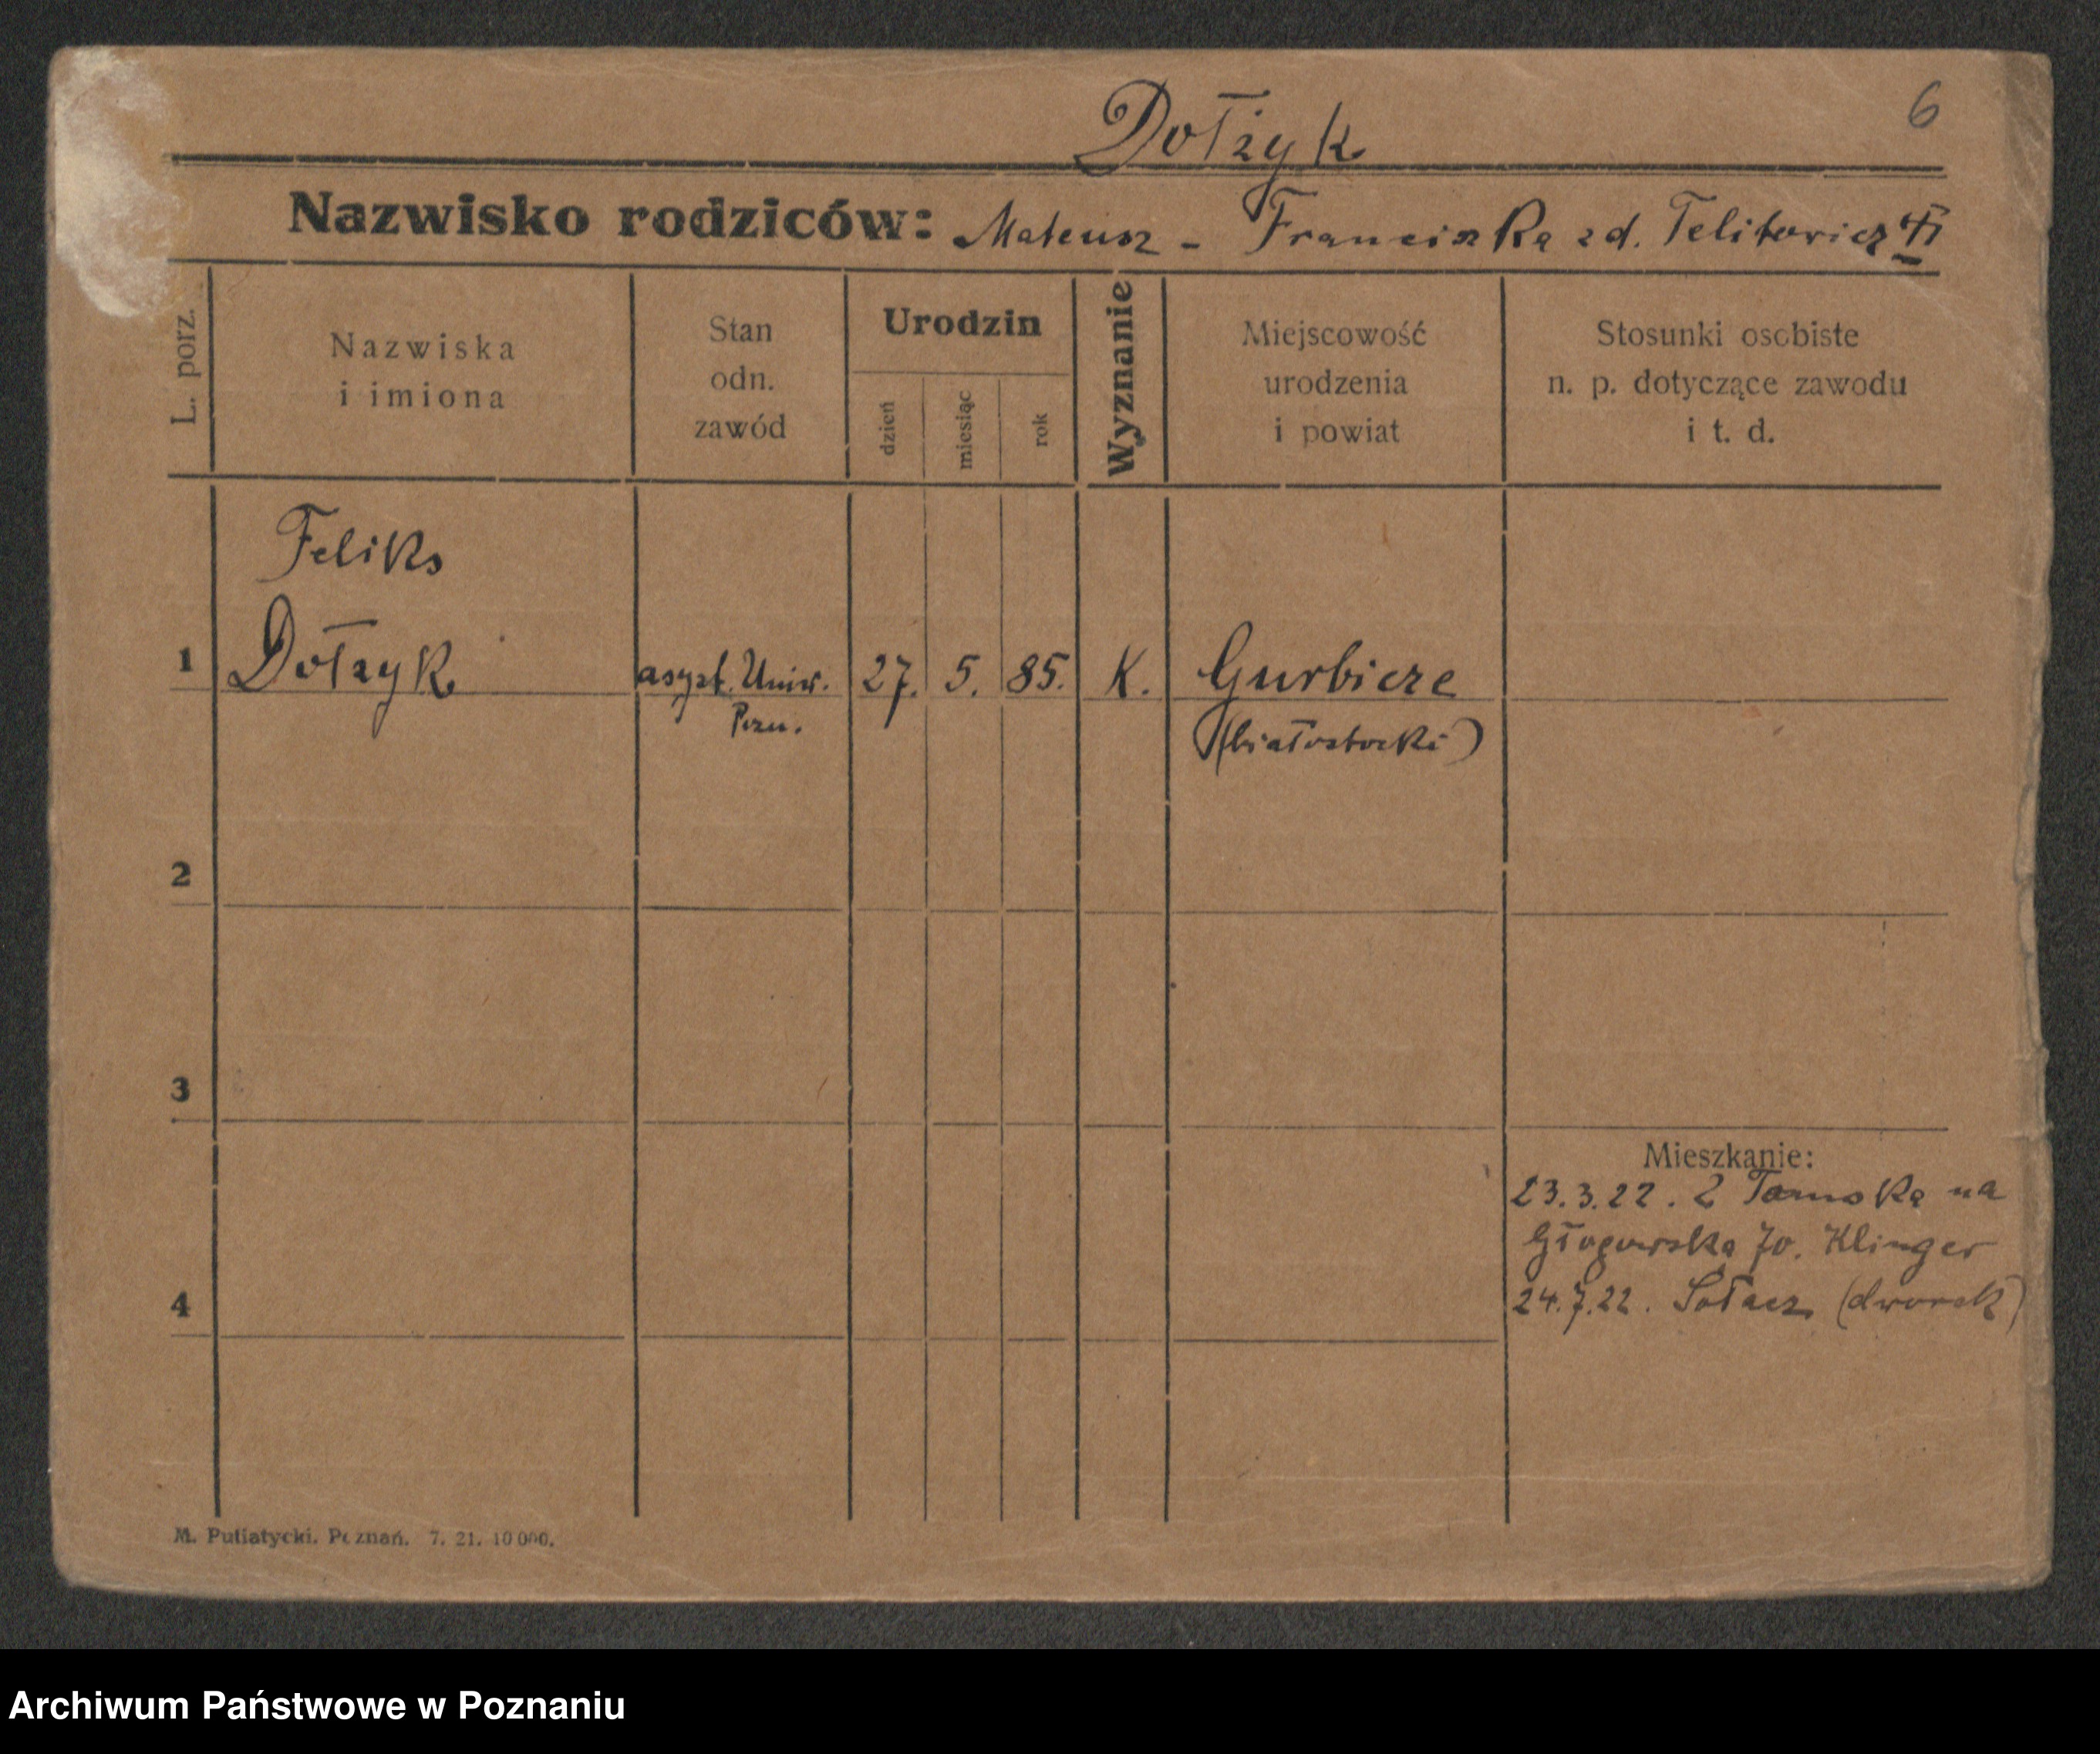 6
Dołżyk
Nazwisko rodziców: Mateusz - Franciszka zd. Telitowicz
L. porz.
Nazwiska
i imiona
Stan
odn.
zawód
Urodzin
dzień
miesiąc
rok
Wyznanie
Miejscowość
urodzenia
i powiat
Stosunki osobiste
n. p. dotyczące zawodu
i t. d.
Feliks
1 Dołzyk asyst. Uniw. 27. 5. 85. K. Gurbicze
Pozn. (białostocki)
2
3
Mieszkanie:
23.3.22. na
Głogowska 70. Klinger
4 24.7.22. Sołacz (dworek)
M. Putiatycki. Poznań. 7. 21. 10000.
Archiwum Państwowe w Poznaniu